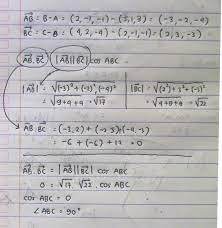 AB = B - A = (2, -1, -1) - (5, 1, 3) = (-3, -2, -4)
BC = C - B = (4, 2, -4) - (2, -1, -1) = (2, 3, -3)
AB . BC = |AB||BC| cos ABC
|AB| = √(-3)² + (-3)² , (-4)²
= √9+4+9 = √17
|BC| = √(2²) + 3² + (-3)²
= √4+9+9 = √22
AB . BC = (-3.2) + (-2.3) + (-4.-3)
= -6 + (-6) + 12 = 0
AB . BC = |AB| |BC| cos ABC
0 = √17 . √22 . cos ABC
cos ABC = 0
∠ABC = 90°